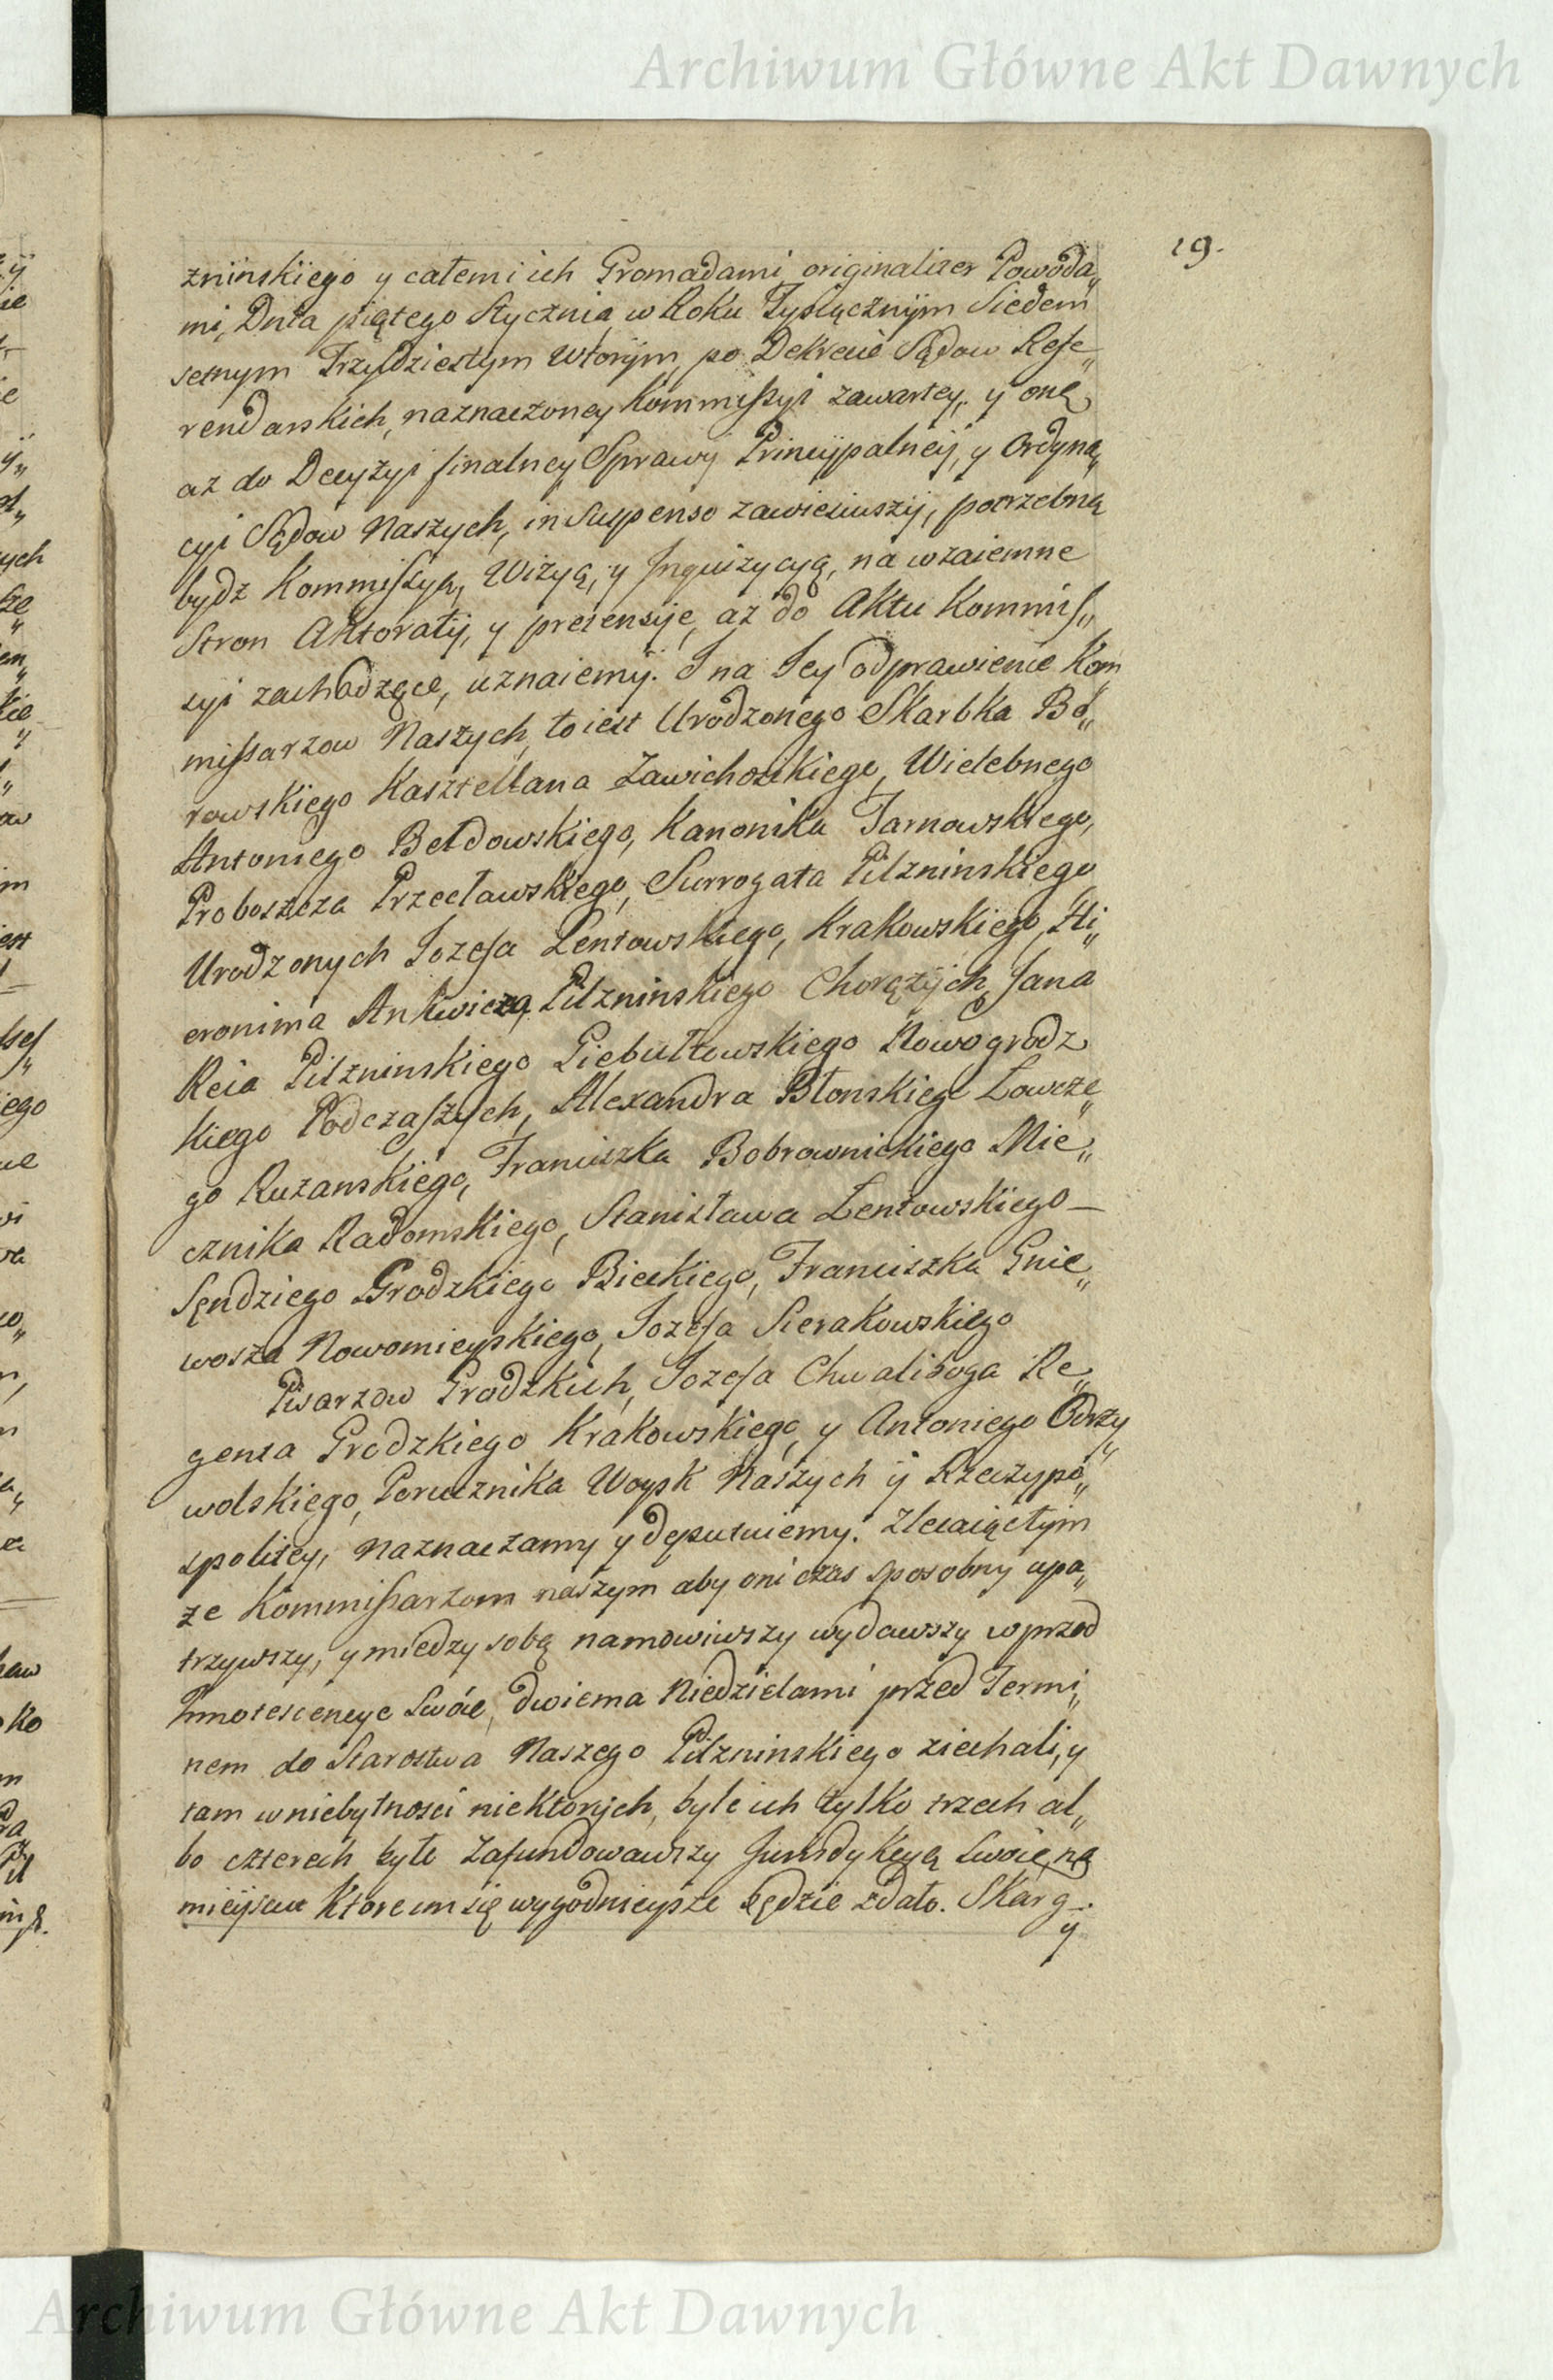 Archiwum Główne Akt Dawnych
19.
żnijnskijego y całemi ich Gromadami originaliter Powoda„
mi, Dnia piątego Stycznia w Roku Tysiącznijm Siedem
setnym Trzydziestym Wtorijm, po Dekrecie Sądow Refe„
rendarskich, naznaczoney Kommissyi zawartey, y onę
aż do Decyzyi finalney Sprawy Princijpalneij, y Ordyna„
cyi Sądow Naszych, in Suspenso zawiesiwszij, potrzebną
bydz Kommissyą, Wizyą, y Inquizycyą, na wzaiemne
Stron Aktoratij, y pretensije, aż do Aktu Kommis„
syi zachodzące, uznaiemij. I na Jey odprawienie Kom
missarzow Naszych, to iest Urodzonego Skarbka Bo„
rowskiego Kasztellana Zawichoskiego, Wielebnego
Antoniego Bełdowskiego, Kanonika Tarnowskiego,
Proboszcza Przecławskiego, Surrogata Pilzninskiego
Urodzonych Jozefa Lentowskiego, Krakowskiego, Hi„
eronima Ankwicza, Pilzninskiego Chorążijch, Jana
Reia Pilzninskiego Piebułtowskiego Nowogrodz
kiego Podczaszych, Alexandra Błonskiego Łowcze„
go Rużanskiego, Franciszka Bobrownickiego Mie„
cznika Radomskiego, Stanisława Lentowskiego —
Sęndziego Grodzkiego Bieckiego, Franciszka Gnie„
wosza Nowomieyskiego, Jozefa Sierakowskiego
Pisarzow Grodzkich, Jozefa Chwaliboga Re„
genta Grodzkiego Krakowskiego, y Antoniego Odrzy„
wolskiego, Porucznika Woysk Naszych ij Rzeczypo„
spolitey, naznaczamy y deputuiemy. Zlecaiąc tym
że Kommissarzom naszym aby oni czas sposobny upa„
trzywszy, y miedzy sobą namowiwszy wydawszy wprzod
Innotescencye Swoie, dwiema Niedzielami przed Termi„
nem do Starostwa Naszego Pilzninskiego ziechali, y
tam w niebytnosci niektorijch, byle ich tylko trzech al„
bo czterech było Zafundowawszy Jurisdykcyą Swoię, na
mieijscu ktore im się wygodnieysze będzie zdało. Skarg
y
Archiwum Główne Akt Dawnych